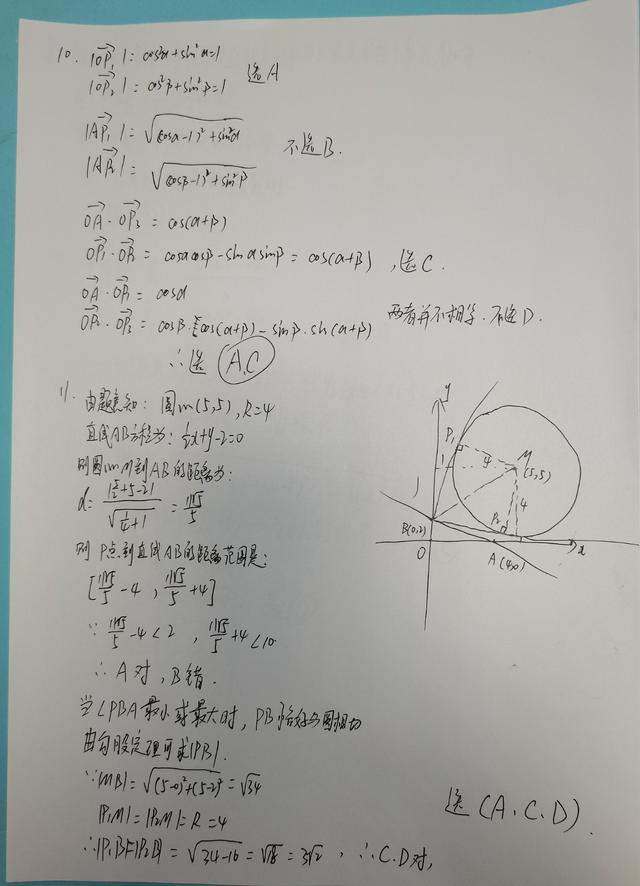 10. |OP₁| = cos²α+sin²α=1
|OP₂| = cos²β+sin²β=1 选A
|AP₁| = √(cosα-1)²+sin²α
|AP₂| = √(cosβ-1)²+sin²β 不选B.
OA·OP₃ = cos(α+β)
OP₁·OP₂ = cosαcosβ-sinαsinβ = cos(α+β) ,选C.
OA·OP₁ = cosα
OP₂·OP₃ = cosβ·cos(α+β)-sinβ·sin(α+β) 两者并不相等.不选D.
∴选 A.C
11. 由题意知: 圆M(5,5), R=4
直线AB方程为: ½x+y-2=0
则圆心M到AB的距离为:
d= |5/2+5-2| / √(1/4+1) = 11√5/5
则P点到直线AB的距离范围是:
[11√5/5-4 , 11√5/5+4]
∵ 11√5/5-4<2 , 11√5/5+4<10
∴A对,B错.
当∠PBA最小或最大时, PB恰好与圆相切
由勾股定理可求|PB|.
∵|MB|=√(5-0)²+(5-2)²=√34
|P₁M|=|P₂M|=R=4
∴|P₁B|=|P₂B|=√34-16=√18=3√2 , ∴C.D对,
选(A.C.D).
y
P₁
4
M
(5,5)
4
P₂
B(0,2)
O
A(4,0)
x